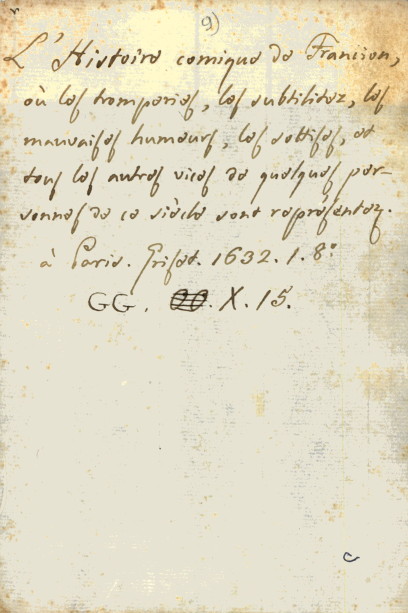 9)
L'Histoire comique de Francion,
où les tromperies, les subtilitez, les
mauvaises humeurs, les sottises, et
tous les autres vices de quelques per-
sonnes de ce siècle sont représentez.
à Paris. Griset. 1632. 1. 8°
GG. X. 15.
C